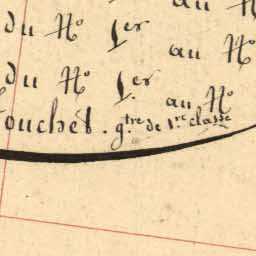 au N
du N.º 1.er
au N.º
du N.º 1.er
au N.º
Couchet. g.tre de 1.re classe